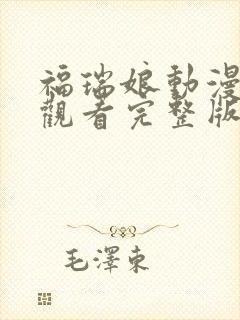 福瑞娘動漫
觀看完整版
毛澤東